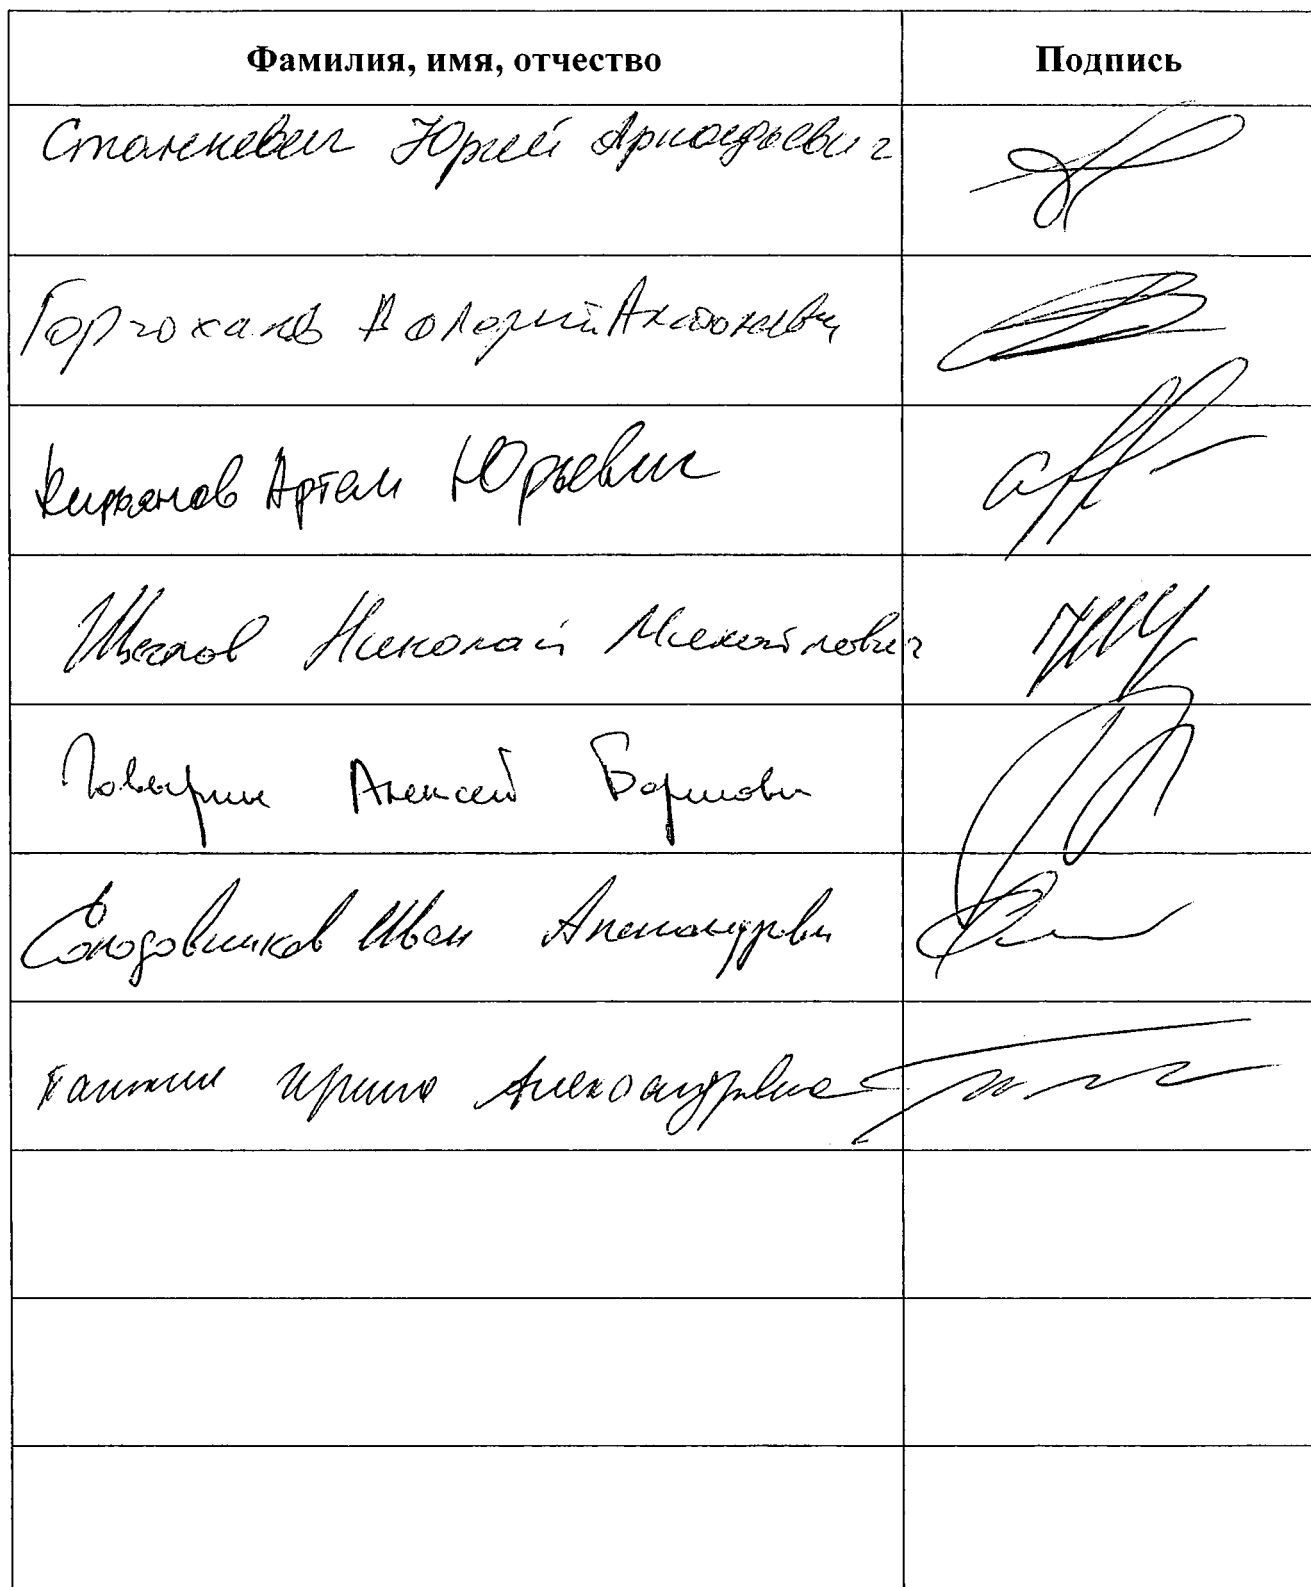 Фамилия, имя, отчество Подпись
Станкевич Юрий Аркадьевич
Валерий Антонович
Кирьянов Артем Юрьевич
Щеглов Николай Михайлович
Говырин Алексей Борисович
Солодовников Иван Александрович
Ирина Александровна